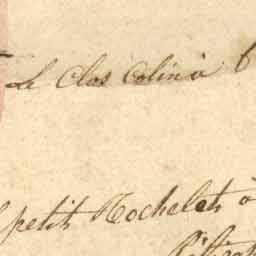 Le Clos Colin à
petit Rochelet à